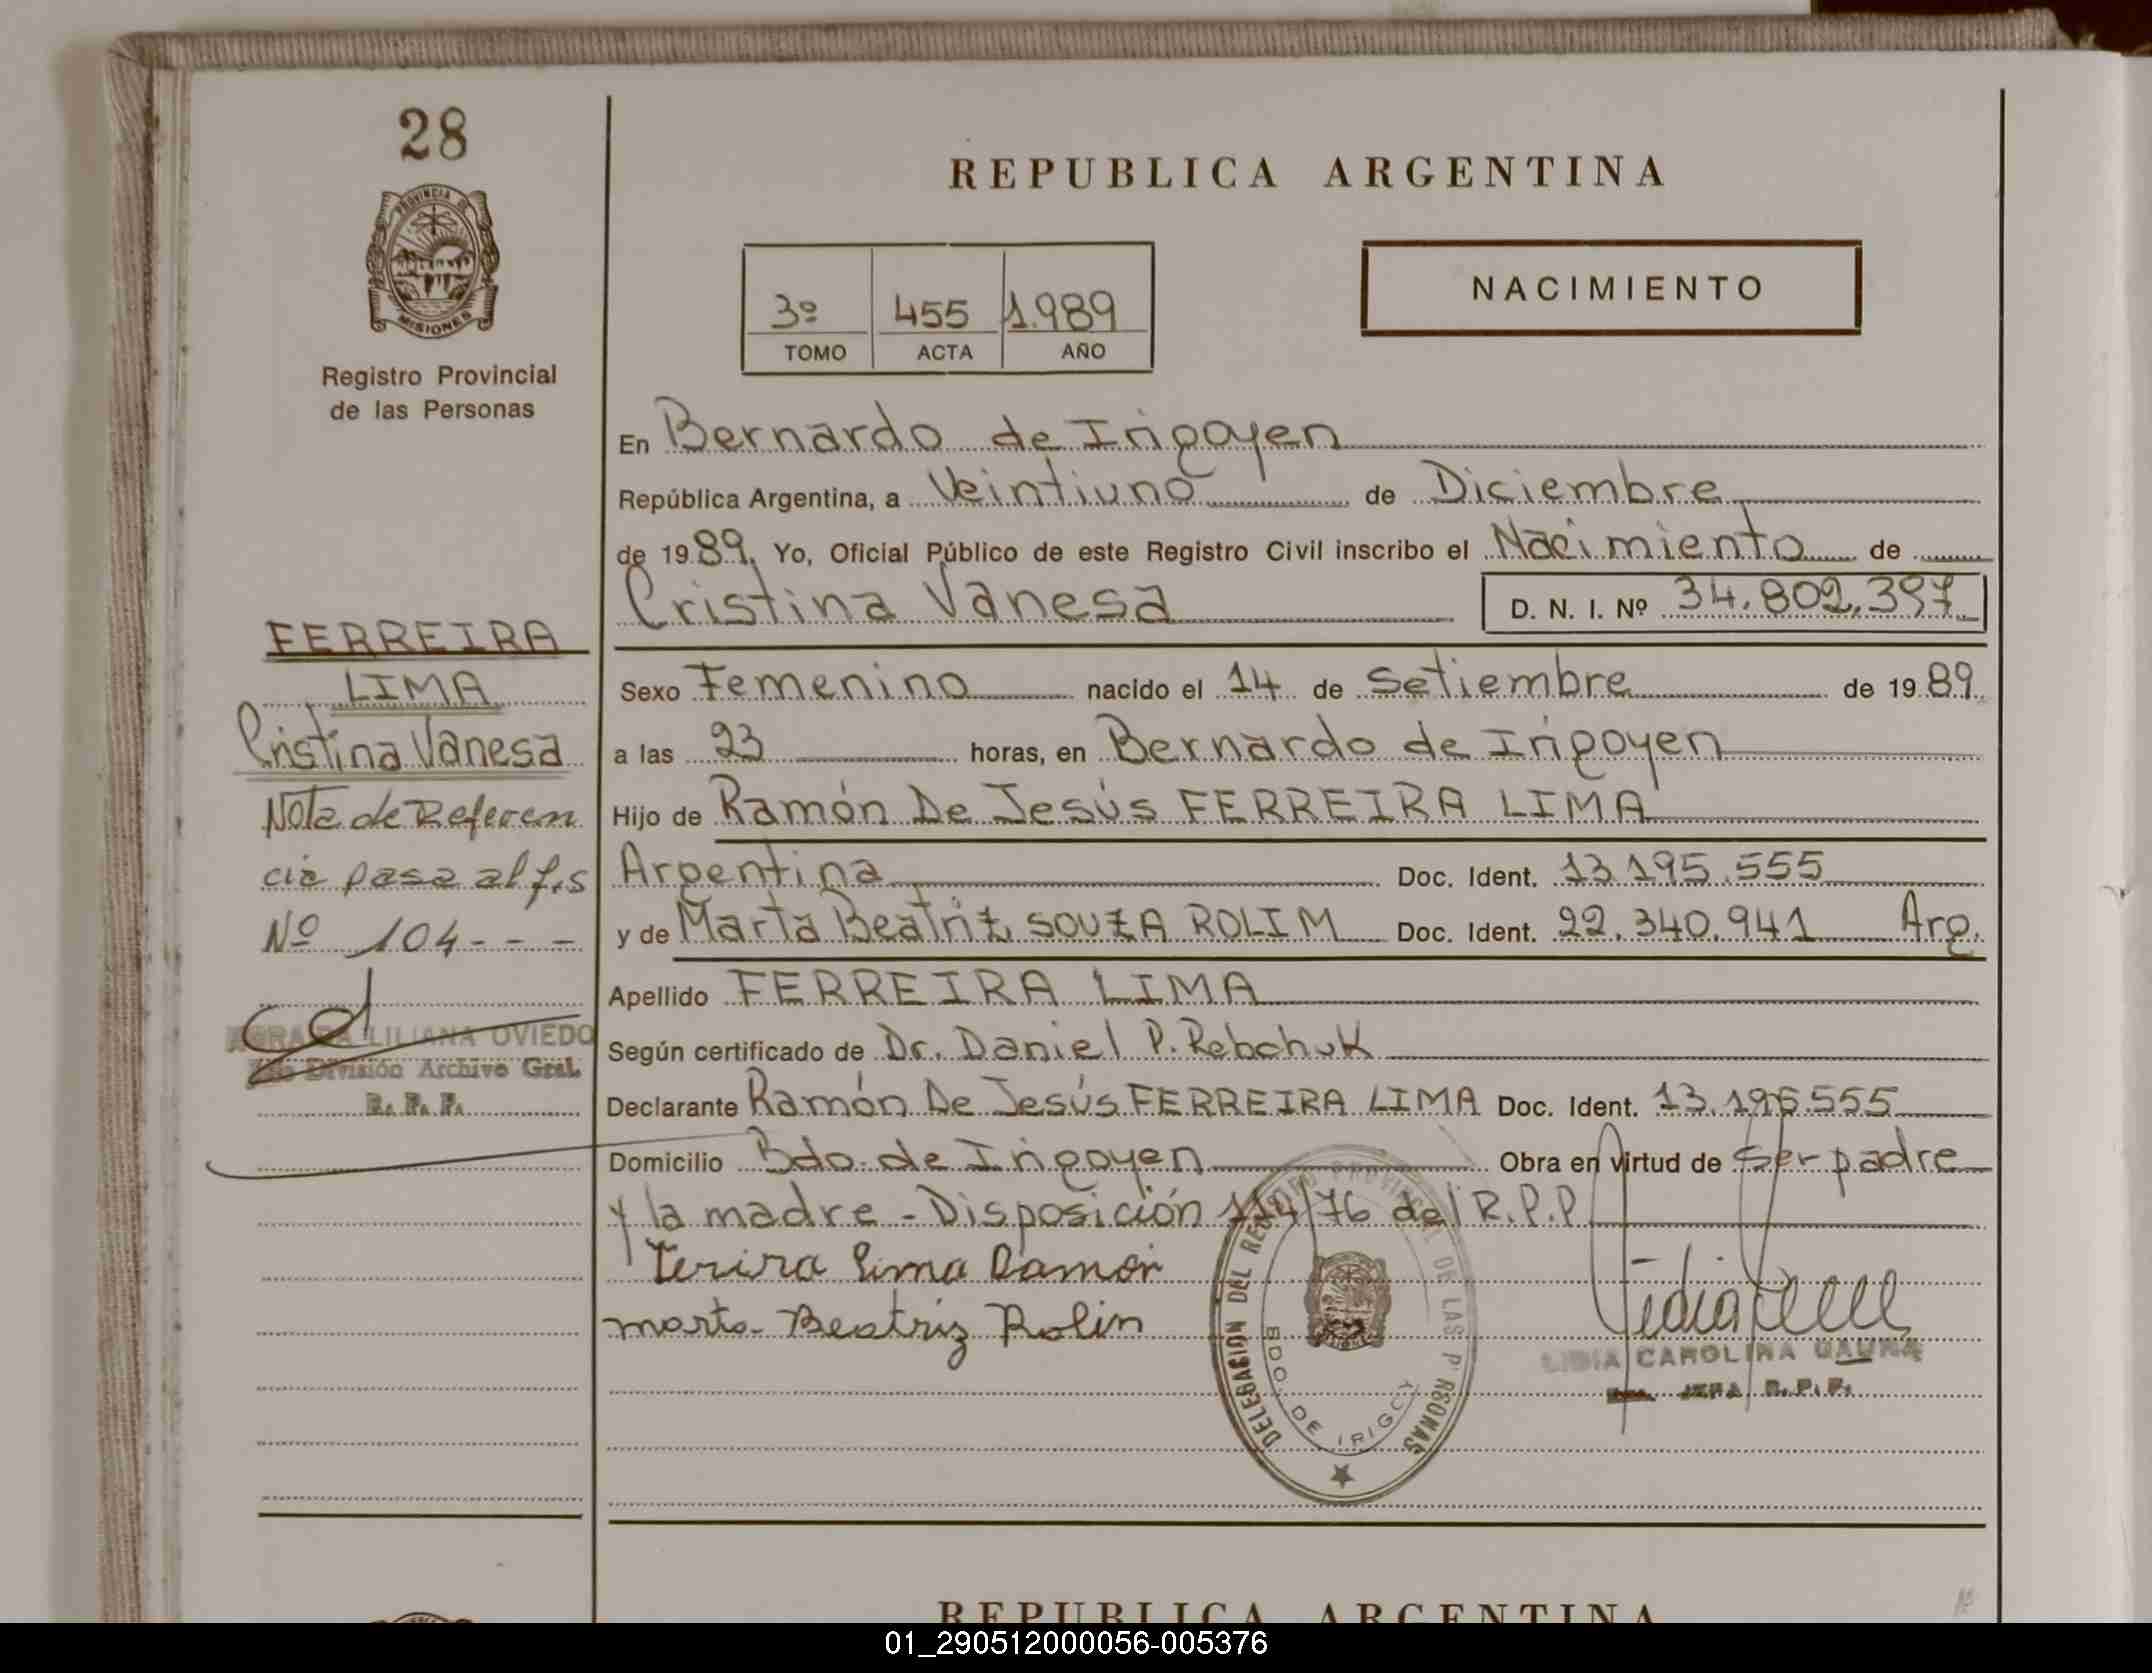 28
PROVINCIA DE
MISIONES
Registro Provincial
de las Personas
REPUBLICA ARGENTINA
3º 455 1.989
TOMO ACTA AÑO
NACIMIENTO
En Bernardo de Irigoyen
República Argentina, a Veintiuno de Diciembre
de 1989. Yo, Oficial Público de este Registro Civil inscribo el Nacimiento de
Cristina Vanesa D. N. I. Nº 34.802.397
Sexo Femenino nacido el 14 de Setiembre de 1989
a las 23 horas, en Bernardo de Irigoyen
Hijo de Ramón De Jesús FERREIRA LIMA
Argentina Doc. Ident. 13.195.555
y de Marta Beatriz SOUZA ROLIM Doc. Ident. 22.340.941 Arg.
Apellido FERREIRA LIMA
Según certificado de Dr. Daniel P. Rebchuk
Declarante Ramón De Jesús FERREIRA LIMA Doc. Ident. 13.195.555
Domicilio Bdo. de Irigoyen Obra en virtud de ser padre
y la madre - Disposición 114/76 del R.P.P
Lima Ramon
marta Beatriz Rolin
LIDIA CAROLINA
JEFA R.P.P.
DELEGACION DEL REGISTRO PROVINCIAL DE LAS PERSONAS
BDO. DE IRIGOY
FERREIRA
LIMA
Cristina Vanesa
Nota de Referen
cia pasa al fs
Nº 104 - - -
LILIANA OVIEDO
División Archivo Gral.
R. P. P.
REPUBLICA ARGENTINA
01_290512000056-005376